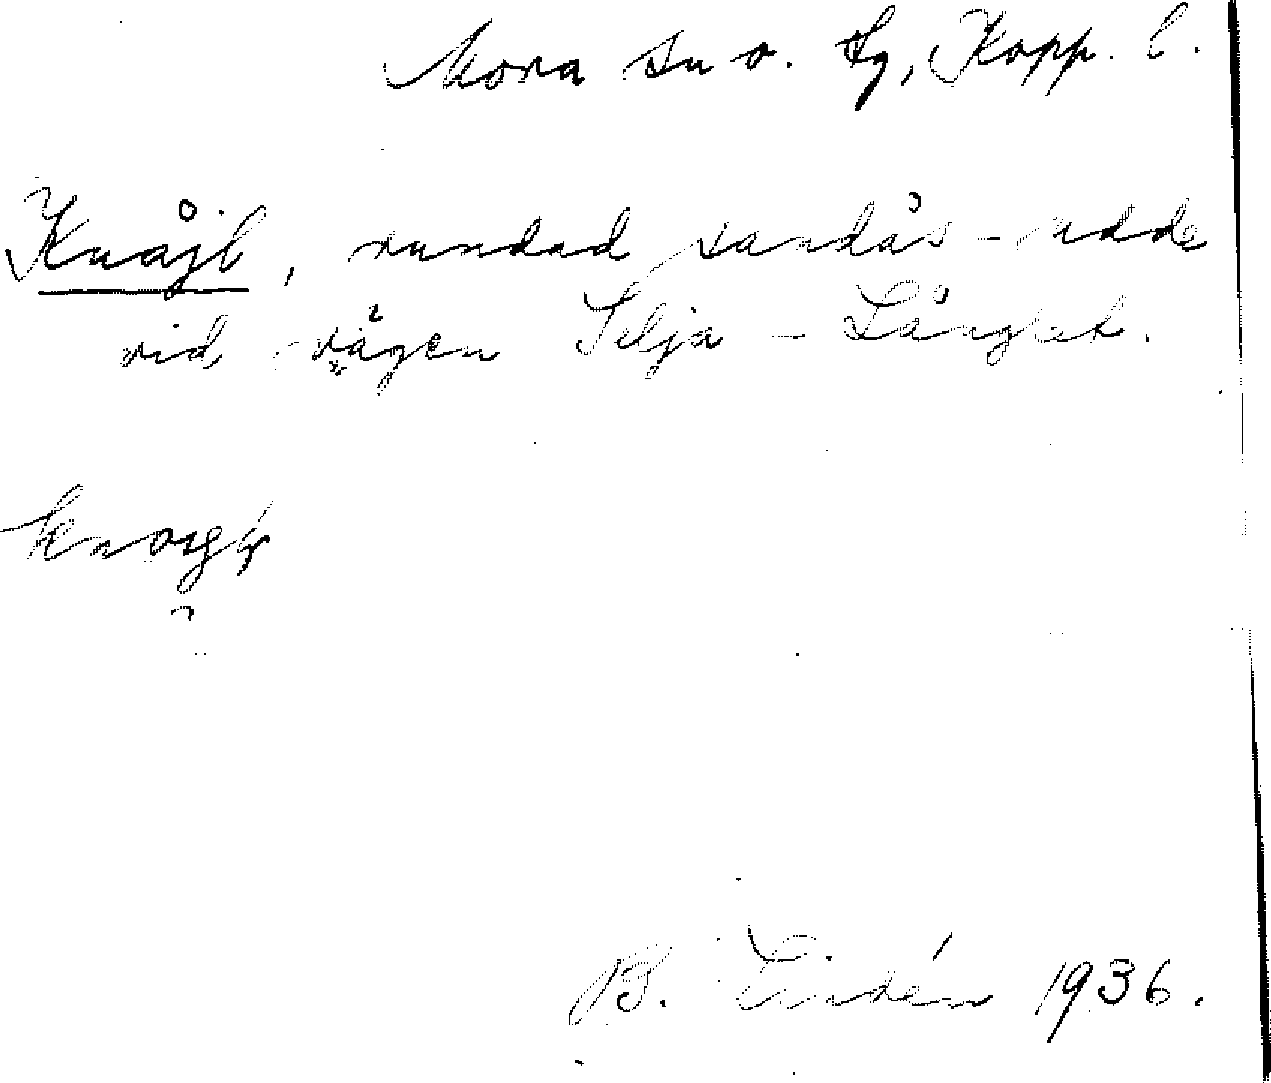 Mora sn o. tg, Kopp. l.
Knåjl, rundad sandås-udde
vid vägen Selja - Långlet.
B. Lindén 1936.